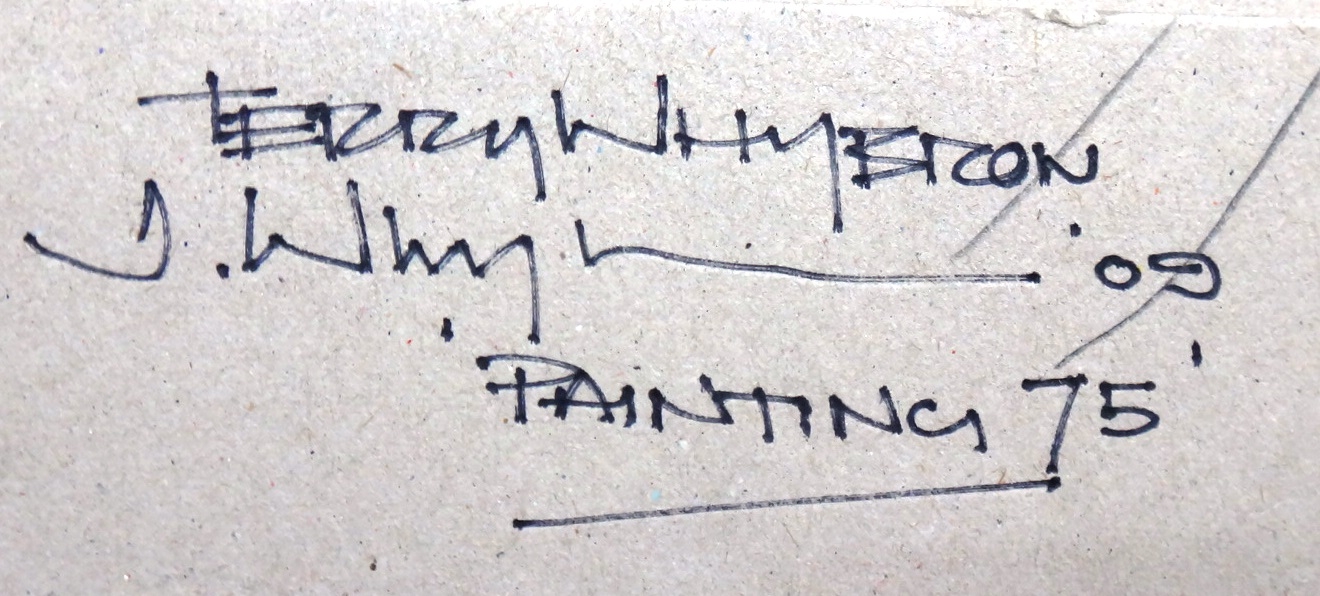 TERRY WHYBROW.
T. Why 09
PAINTING 75